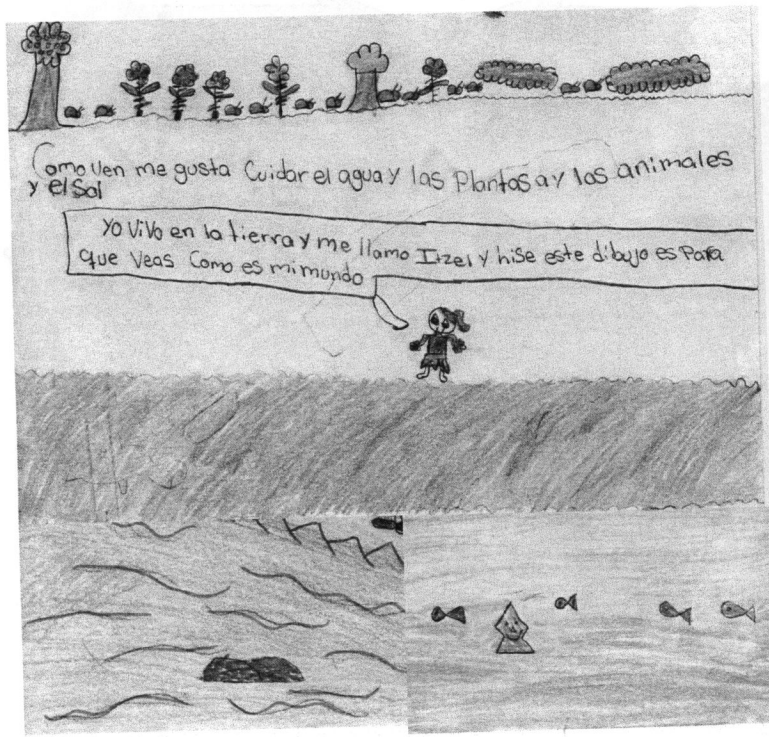 Como Ven me gusta Cuidar el agua y las Plantas ay los animales
y el Sol
Yo ViVo en la tierra y me llamo Itzel y hise este dibujo es Para
que Veas Como es mi mundo